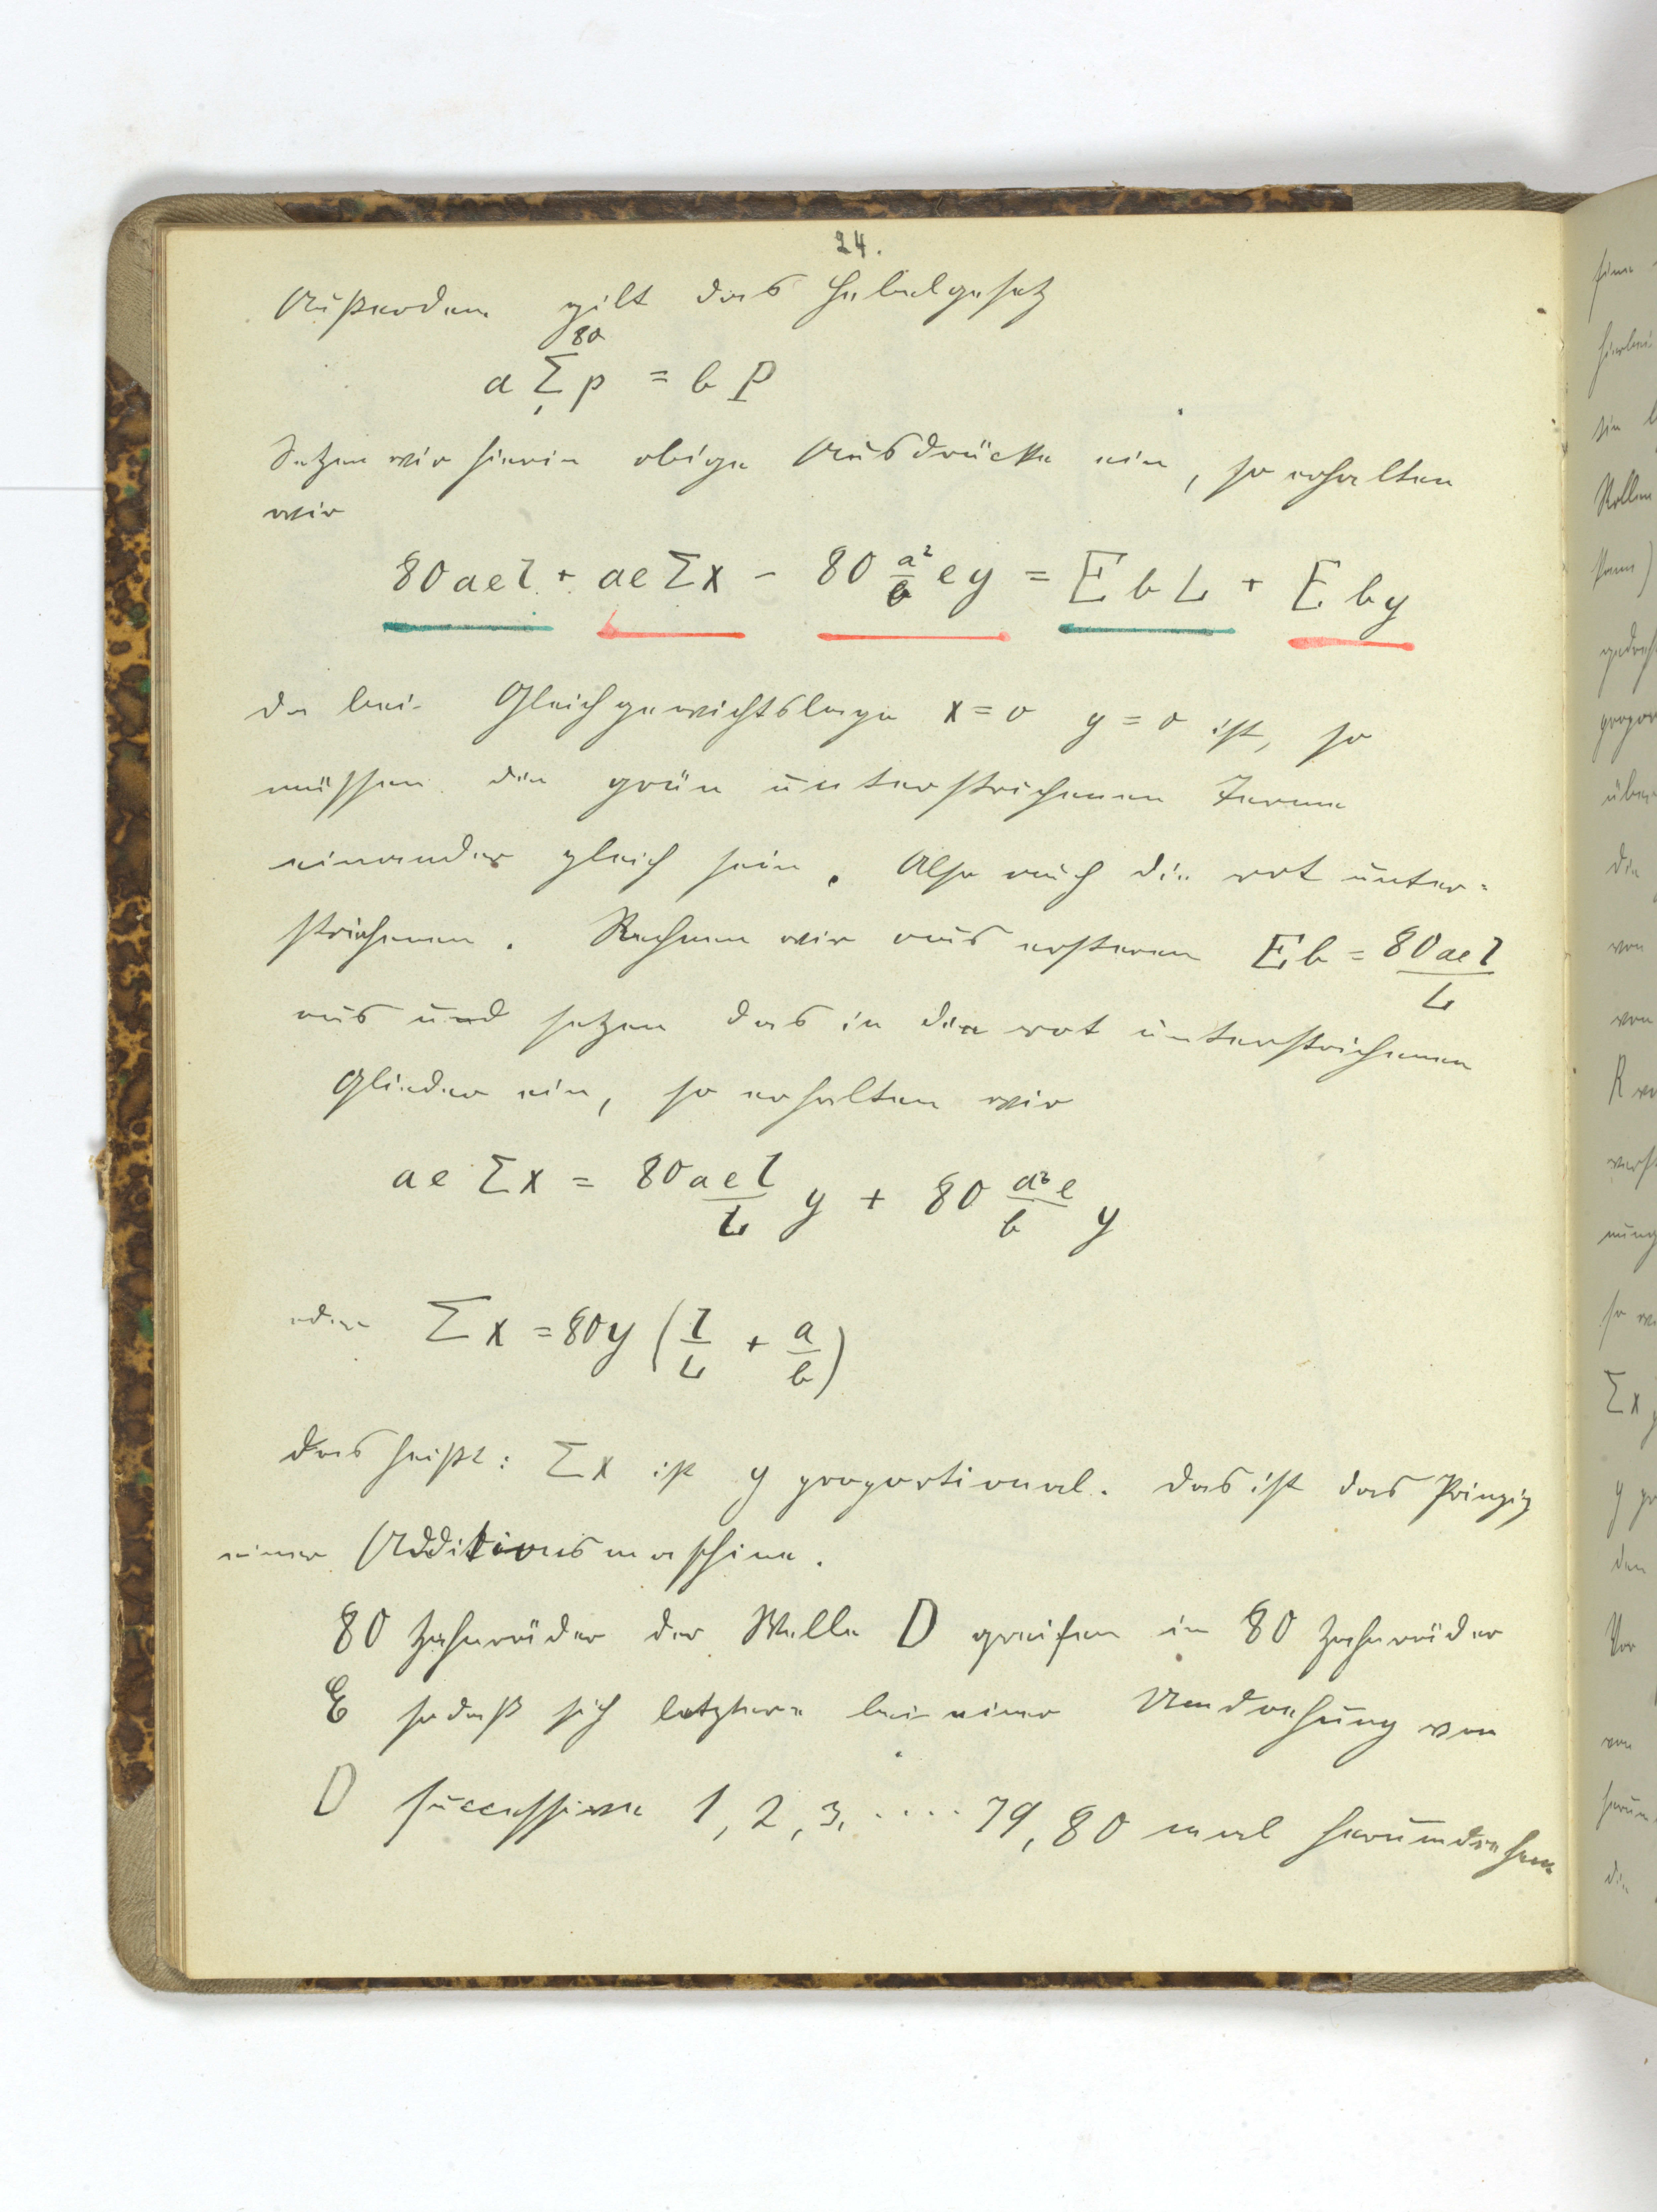 24.
Außerdem gilt das Hebelgesetz
a 80Σ1 p = b P
Setzen wir hierin obige Ausdrücke ein, so erhalten
wir
80ael + aeΣx - 80 a²/b ey = EbL + Eby
da bei Gleichgewichtslage x=0 y=0 ist, so
müssen die grün unterstrichenen Terme
einander gleich sein. Also auch die rot unter=
strichenen. Rechnen wir aus ersterem Eb = 80ael/L
aus und setzen das in die rot unterstrichenen
Glieder ein, so erhalten wir
aeΣx = 80ael/L y + 80 a²e/b y
oder Σx = 80y (l/L + a/b)
das heißt: Σx ist y proportional. Das ist das Prinzip
einer Additionsmaschine.
80 Zahnräder der Welle D greifen in 80 Zahnräder
E sodaß sich letztere bei einer Umdrehung von
D successive 1, 2, 3, .... 79, 80 mal herumdrehen